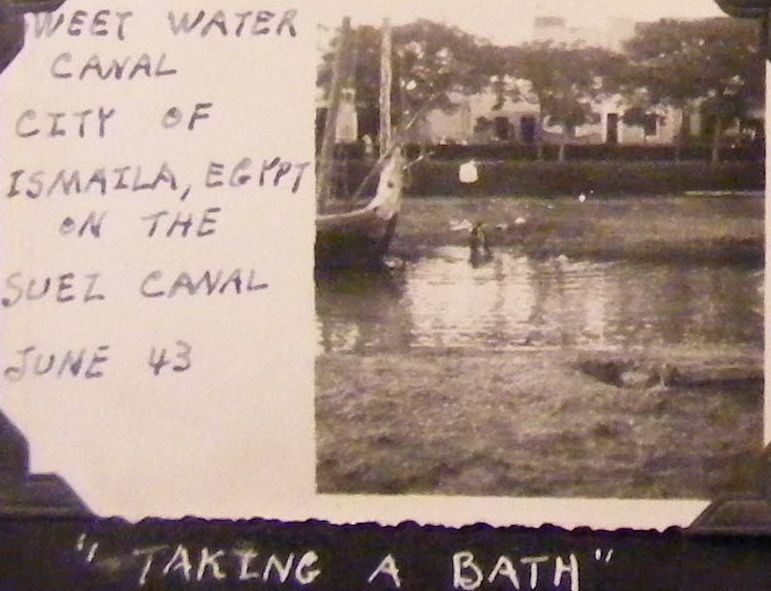 SWEET WATER
CANAL
CITY OF
ISMAILA, EGYPT
ON THE
SUEZ CANAL
JUNE 43
"TAKING A BATH"